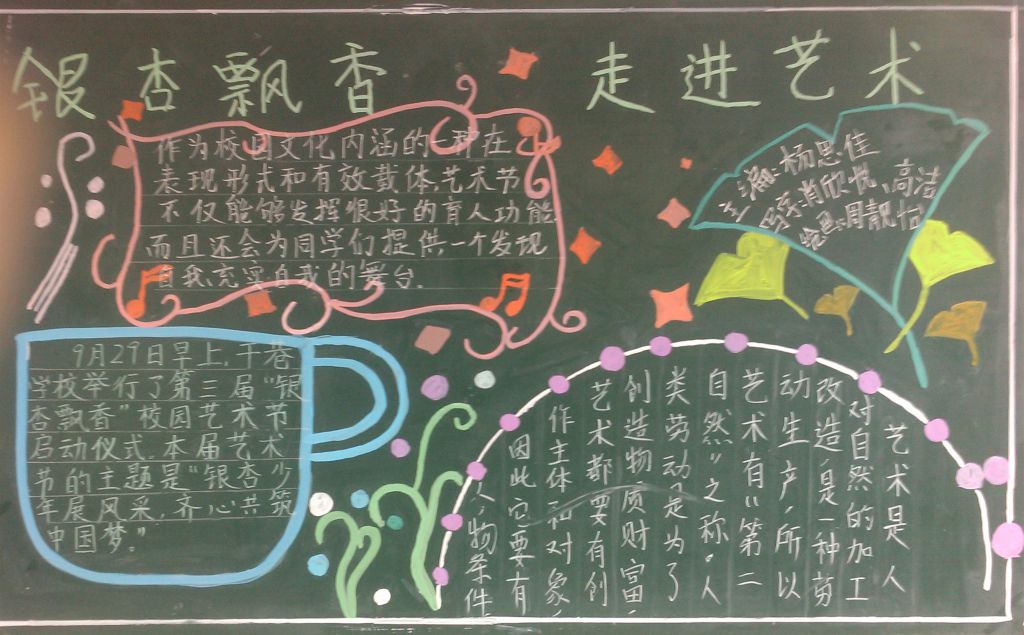 银杏飘香 走进艺术
作为校园文化内涵的一种在
表现形式和有效载体,艺术节
不仅能够发挥很好的育人功能
而且还会为同学们提供一个发现
自我,充实自我的舞台.
主编:杨思佳
写字:肖欣悦、高洁
绘画:周靓怡
9月29日早上,干巷
学校举行了第三届“银
杏飘香”校园艺术节
启动仪式.本届艺术
节的主题是“银杏少
年展风采,齐心共筑
中国梦。”
艺术是人
对自然的加工
改造,是一种劳
动生产,所以
艺术有“第二
自然”之称。人
类劳动是为了
创造物质财富,
艺术都要有创
作主体和对象
因此它要有
人,物条件